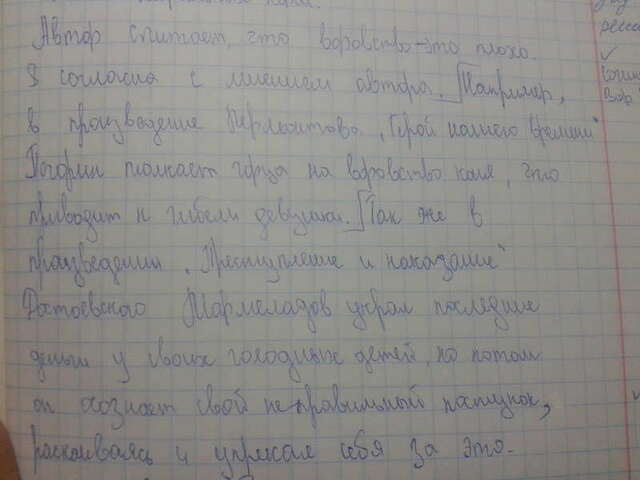 Автор считает, что воровство-это плохо.
Я согласна с мнением автора. Например,
в произведение Лермонтова „Герой нашего времени"
Печорин толкает горца на воровство коня, что
приводит к гибели девушки. Так же в
произведении „Преступление и наказание"
Достоевского Мармеладов украл последние
деньги у своих голодных детей, но потом
он осознает свой неправильный поступок,
раскаиваясь и упрекая себя за это.